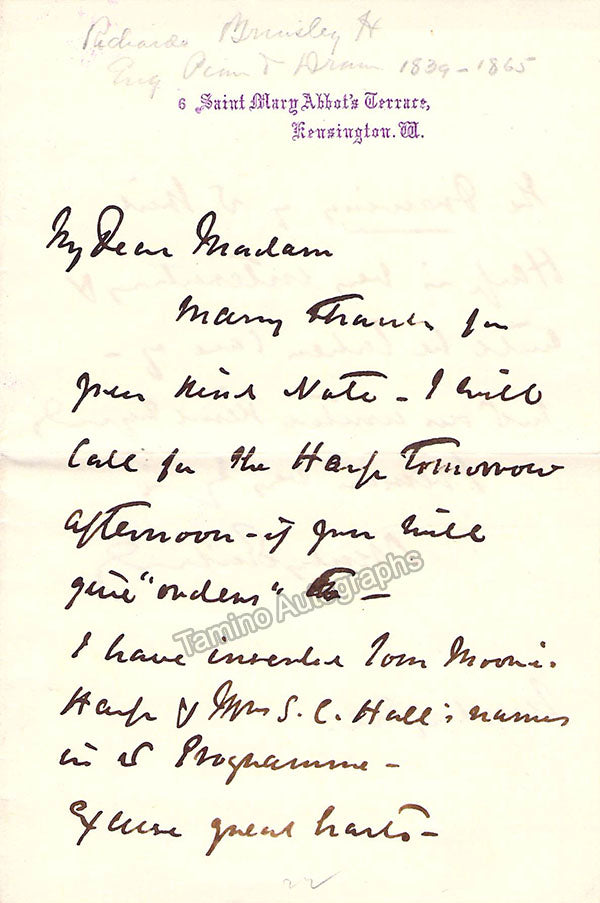 Richards Brinsley H
Eng 1839-1865
6 Saint Mary Abbot's Terrace,
Kensington. W.
My Dear Madam
Many Thanks for
your kind Note - I will
Call for the Harp Tomorrow
afternoon - if you will
give "orders" to -
Tamino Autographs
I have inserted Tom Moore's
Harp & Mrs S. C. Hall's names
in Programme -
Excuse great haste -
22